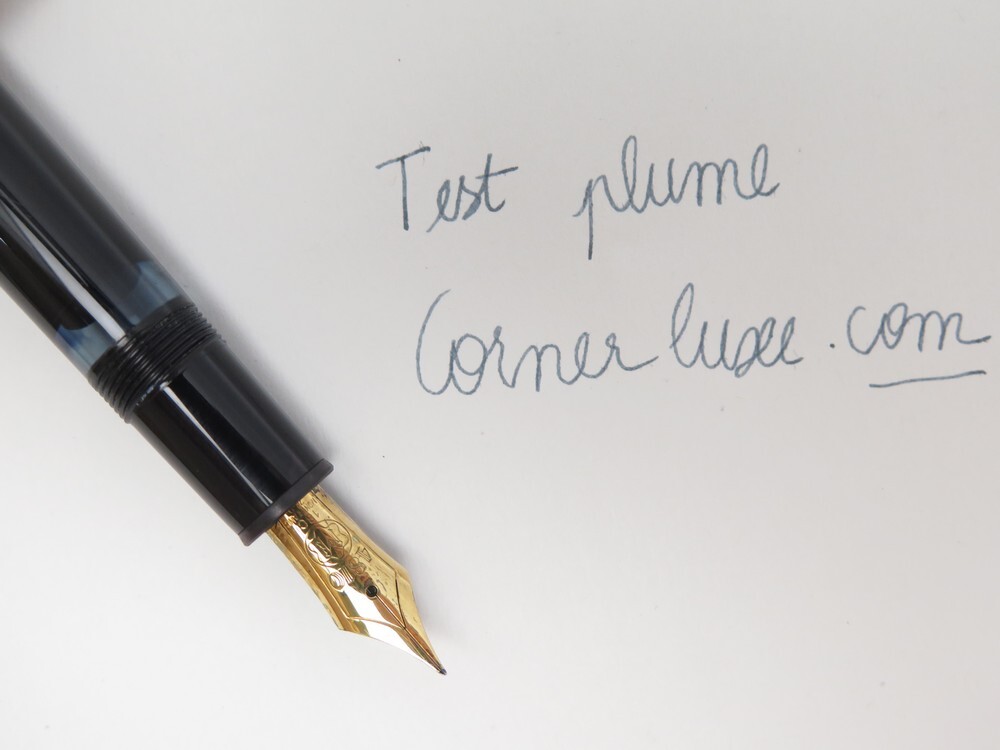 Test plume
Corner luxe.com